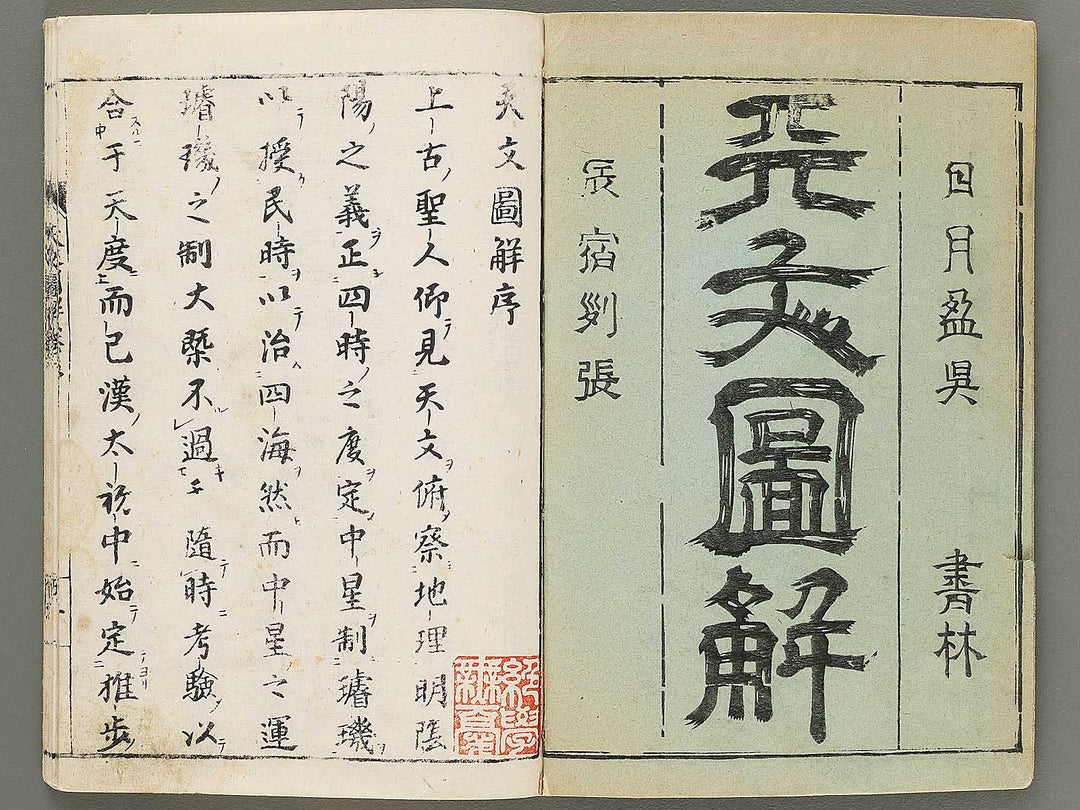 日月盈昃　書林
天文圖解
辰宿列張
天文圖解序
上古聖人仰見天文俯察地理明陰
陽之義正四時之度定中星制璿璣
以授民時以治四海然而中星之運
璿璣之制大槩不過乎隨時考驗以
合于天度而已漢太初中始定推歩